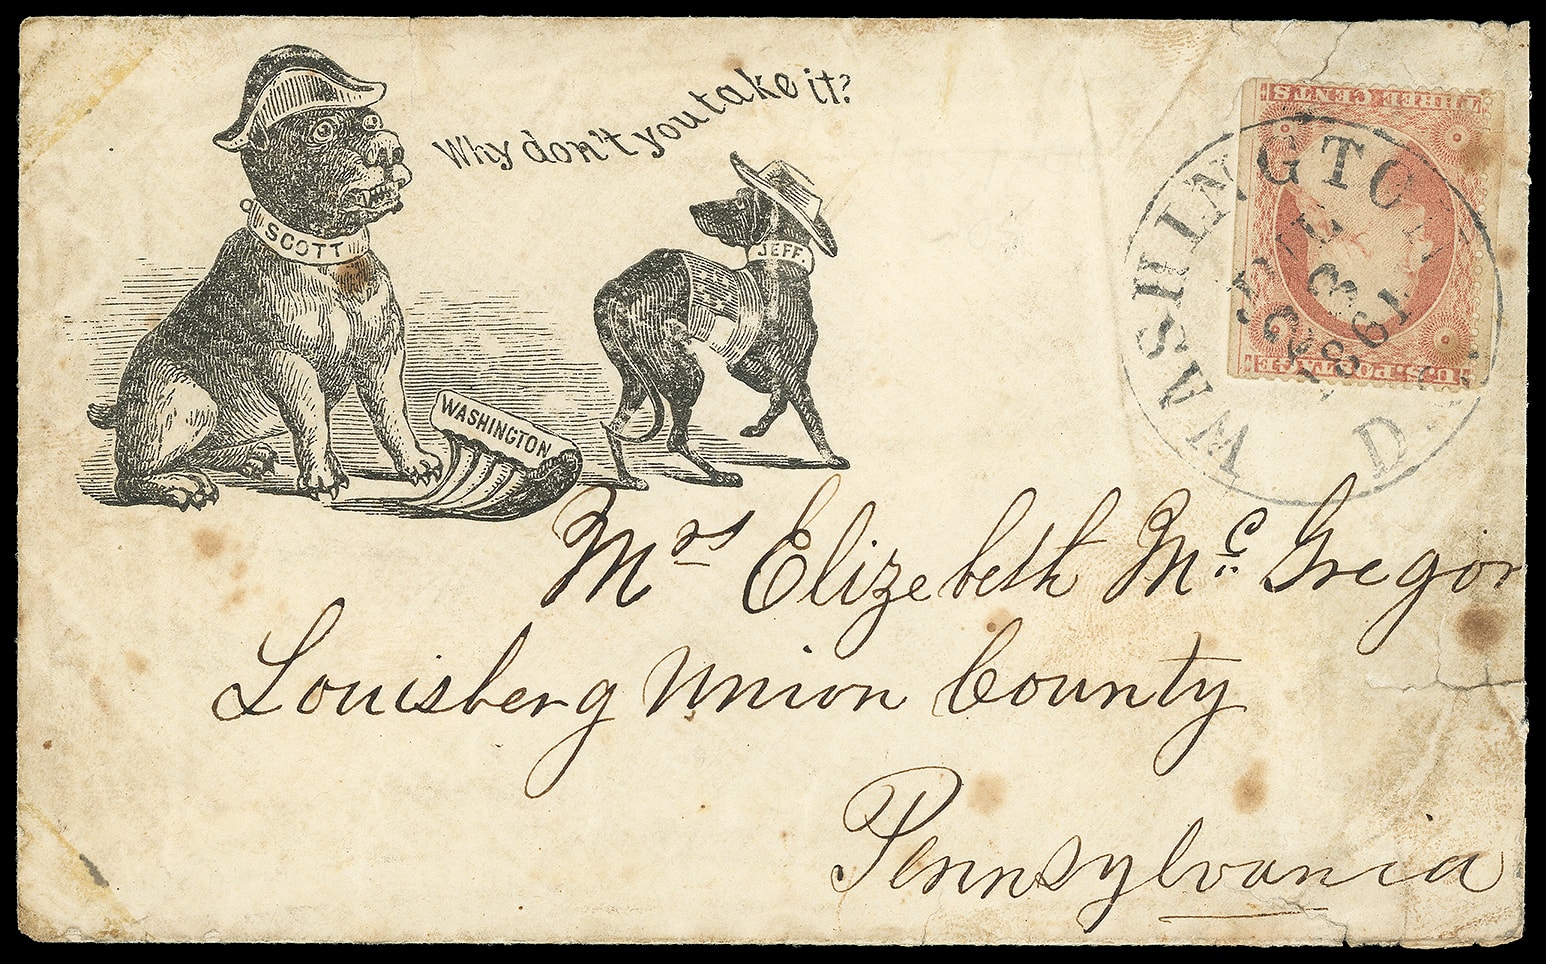 Why don't you take it?
SCOTT
JEFF.
WASHINGTON
THREE CENTS
U.S. POSTAGE
WASHINGTON D.
JUL
23
1861
Mrs Elizebeth Mc Gregor
Louisberg Union County
Pennsylvania